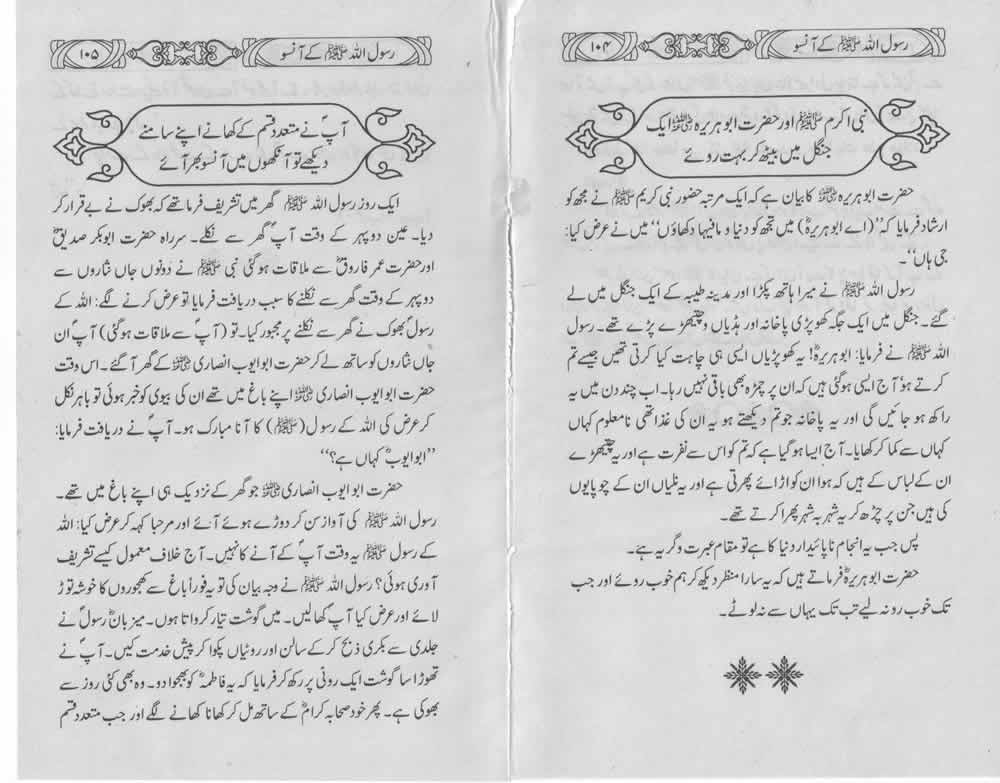 رسول اللہ ﷺ کے آنسو
۱۰۴
نبی اکرم ﷺ اور حضرت ابوہریرہ رضی اللہ عنہ ایک
جنگل میں بیٹھ کر بہت روئے
حضرت ابوہریرہ رضی اللہ عنہ کا بیان ہے کہ ایک مرتبہ حضور نبی کریم ﷺ نے مجھ کو
ارشاد فرمایا کہ ’’(اے ابوہریرہؓ) میں تجھ کو دنیا و مافیہا دکھاؤں‘‘ میں نے عرض کیا:
جی ہاں‘‘۔
رسول اللہ ﷺ نے میرا ہاتھ پکڑا اور مدینہ طیبہ کے ایک جنگل میں لے
گئے۔ جنگل میں ایک جگہ کھوپڑی پاخانہ اور ہڈیاں و چیتھڑے پڑے تھے۔ رسول
اللہ ﷺ نے فرمایا: ابوہریرہؓ! یہ کھوپڑیاں ایسی ہی چاہت کیا کرتی تھیں جیسے تم
کرتے ہو‘ آج ایسی ہوگئی ہیں کہ ان پر چمڑہ بھی باقی نہیں رہا۔ اب چند دن میں یہ
راکھ ہو جائیں گی اور یہ پاخانہ جو تم دیکھتے ہو یہ ان کی غذا تھی نامعلوم کہاں
کہاں سے کما کر کھایا۔ آج ایسا ہو گیا ہے کہ تم کو اس سے نفرت ہے اور یہ چیتھڑے
ان کے لباس کے ہیں کہ ہوا ان کو اڑائے پھرتی ہے اور یہ نلیاں ان کے چوپایوں
کی ہیں جن پر چڑھ کر یہ شہر بہ شہر پھرا کرتے تھے۔
پس جب یہ انجام ناپائیدار دنیا کا ہے تو مقام عبرت و گریہ ہے۔
حضرت ابوہریرہؓ فرماتے ہیں کہ یہ سارا منظر دیکھ کر ہم خوب روئے اور جب
تک خوب رو نہ لیے تب تک یہاں سے نہ لوٹے۔
رسول اللہ ﷺ کے آنسو
۱۰۵
آپؐ نے متعدد قسم کے کھانے اپنے سامنے
دیکھے تو آنکھوں میں آنسو بھر آئے
ایک روز رسول اللہ ﷺ گھر میں تشریف فرما تھے کہ بھوک نے بے قرار کر
دیا۔ عین دوپہر کے وقت آپؐ گھر سے نکلے۔ سرراہ حضرت ابوبکر صدیقؓ
اور حضرت عمر فاروقؓ سے ملاقات ہوگئی نبی ﷺ نے دونوں جاں نثاروں سے
دوپہر کے وقت گھر سے نکلنے کا سبب دریافت فرمایا تو عرض کرنے لگے: اللہ کے
رسولؐ بھوک نے گھر سے نکلنے پر مجبور کیا۔ تو (آپؐ سے ملاقات ہوگئی) آپؐ ان
جاں نثاروں کو ساتھ لے کر حضرت ابوایوب انصاری رضی اللہ عنہ کے گھر آ گئے۔ اس وقت
حضرت ابوایوب انصاری رضی اللہ عنہ اپنے باغ میں تھے ان کی بیوی کو خبر ہوئی تو باہر نکل
کر عرض کی اللہ کے رسول (ﷺ) کا آنا مبارک ہو۔ آپؐ نے دریافت فرمایا:
’’ابوایوبؓ کہاں ہے؟‘‘
حضرت ابوایوب انصاری رضی اللہ عنہ جو گھر کے نزدیک ہی اپنے باغ میں تھے۔
رسول اللہ ﷺ کی آواز سن کر دوڑے ہوئے آئے اور مرحبا کہہ کر عرض کیا: اللہ
کے رسول ﷺ یہ وقت آپؐ کے آنے کا نہیں۔ آج خلاف معمول کیسے تشریف
آوری ہوئی؟ رسول اللہ ﷺ نے وجہ بیان کی تو یہ فوراً باغ سے کھجوروں کا خوشہ توڑ
لائے اور عرض کیا آپؐ کھا لیں۔ میں گوشت تیار کرواتا ہوں۔ میزبان رسولؐ نے
جلدی سے بکری ذبح کر کے سالن اور روٹیاں پکوا کر پیش خدمت کیں۔ آپؐ نے
تھوڑا سا گوشت ایک روٹی پر رکھ کر فرمایا کہ یہ فاطمہؓ کو بھجوا دو۔ وہ بھی کئی روز سے
بھوکی ہے۔ پھر خود صحابہ کرامؓ کے ساتھ مل کر کھانا کھانے لگے اور جب متعدد قسم